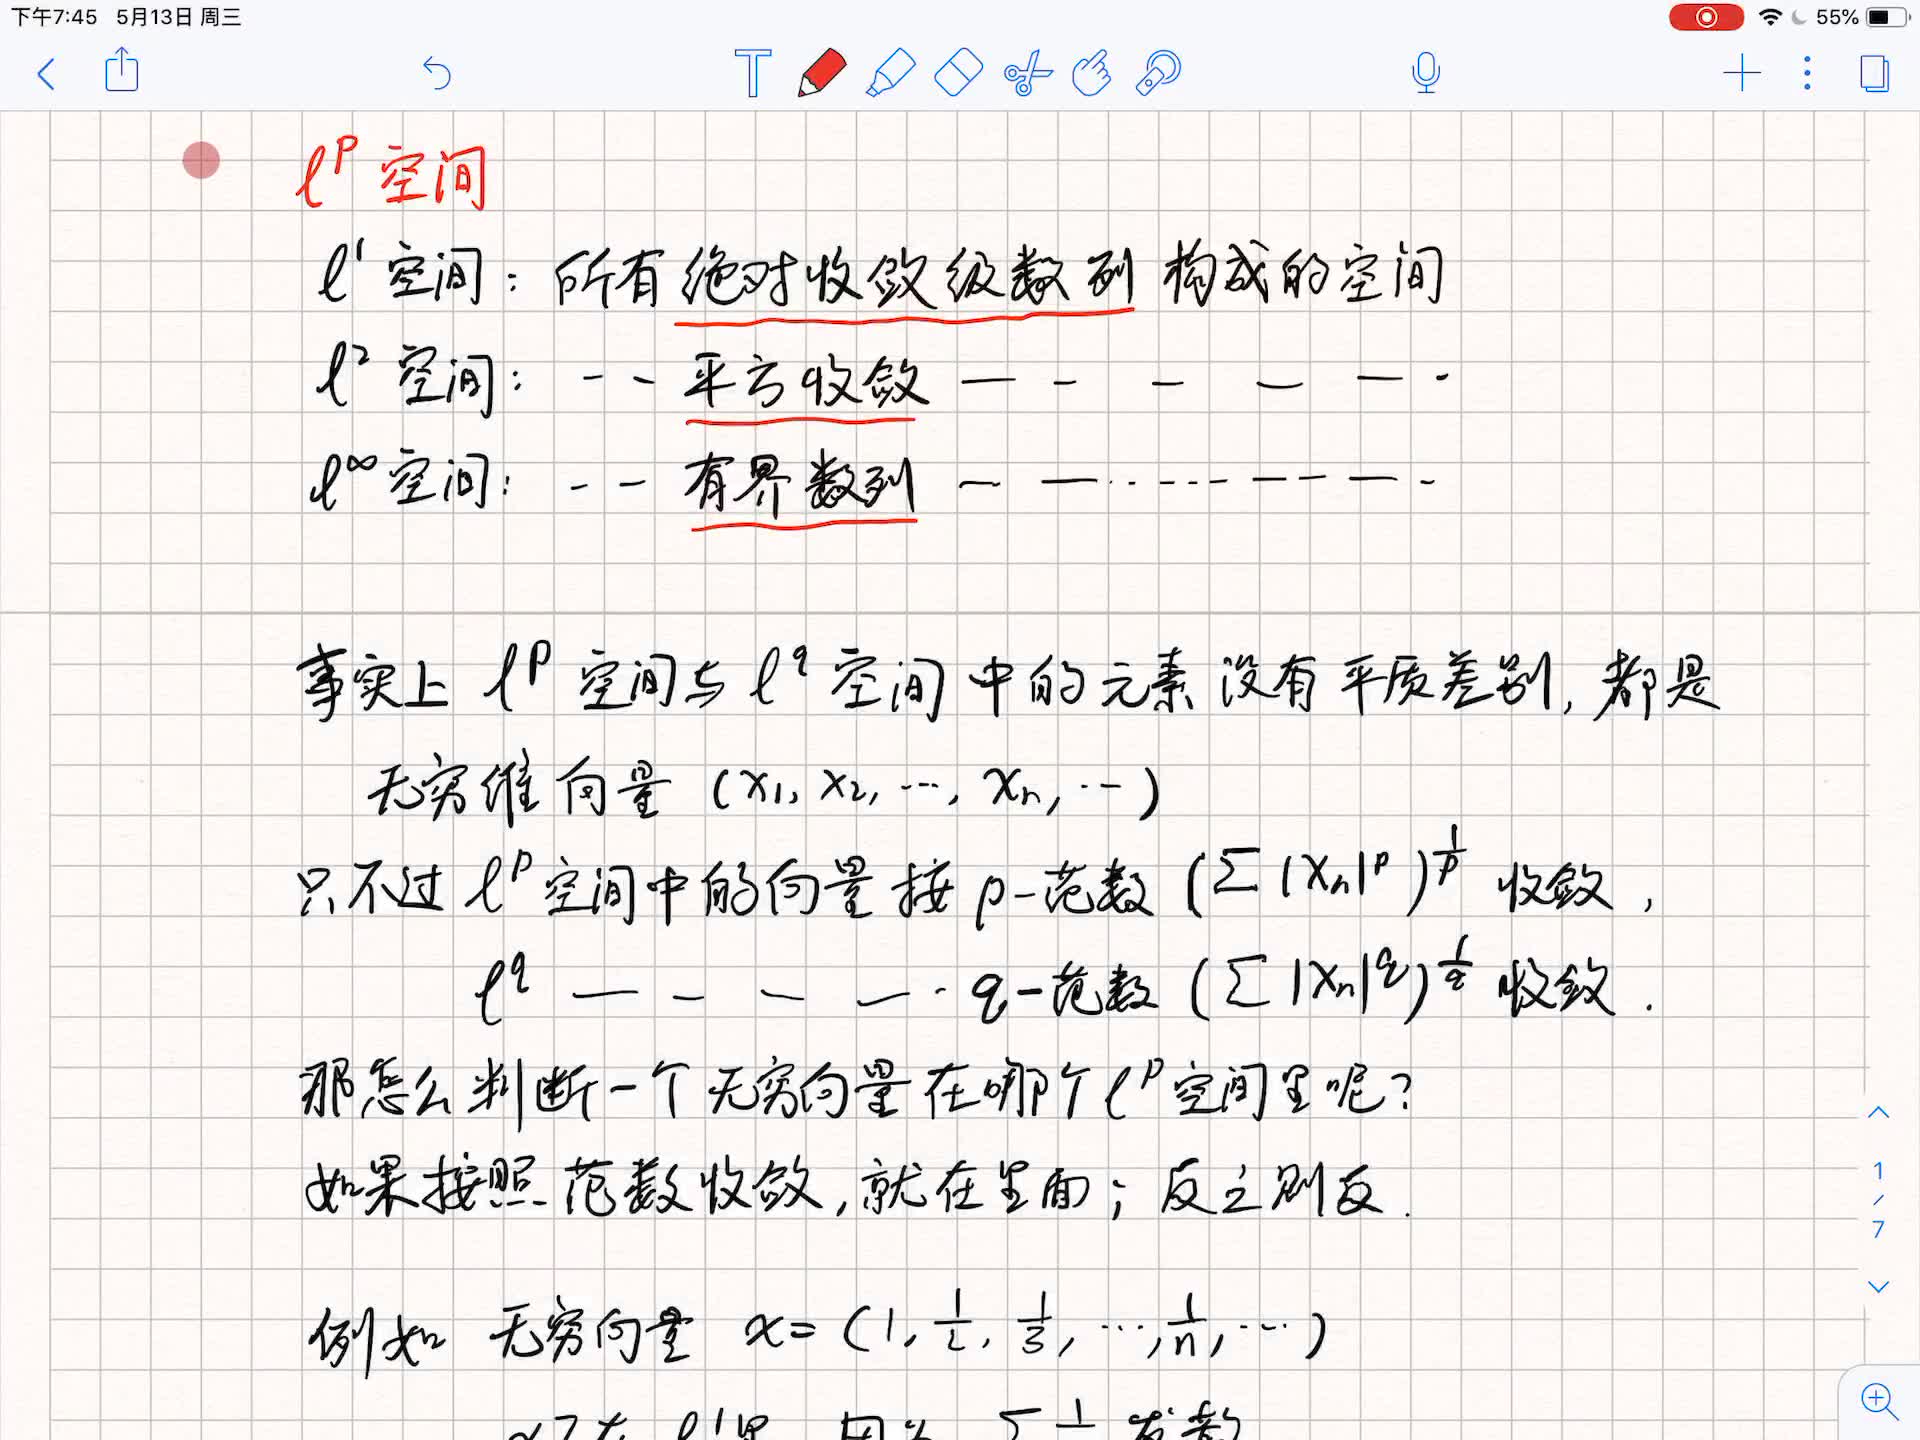 下午7:45 5月13日 周三
55%
ℓᵖ 空间
ℓ¹ 空间：所有绝对收敛级数列 构成的空间
ℓ² 空间： -- 平方收敛 — - - — — -
ℓ^∞ 空间： -- 有界数列 — — - - - - — — -
事实上 ℓᵖ 空间与 ℓ^q 空间 中的元素没有平质差别, 都是
无穷维向量 (x₁, x₂, …, xₙ, …)
只不过 ℓᵖ 空间中的向量按 p-范数 (∑|xₙ|ᵖ)^(1/p) 收敛,
ℓ^q — - — — · q-范数 (∑|xₙ|^q)^(1/q) 收敛.
那怎么判断一个无穷向量在哪个 ℓᵖ 空间里呢?
如果按照范数收敛, 就在里面; 反之则反.
例如 无穷向量 x = (1, 1/2, 1/3, …, 1/n, …)
1
/
7